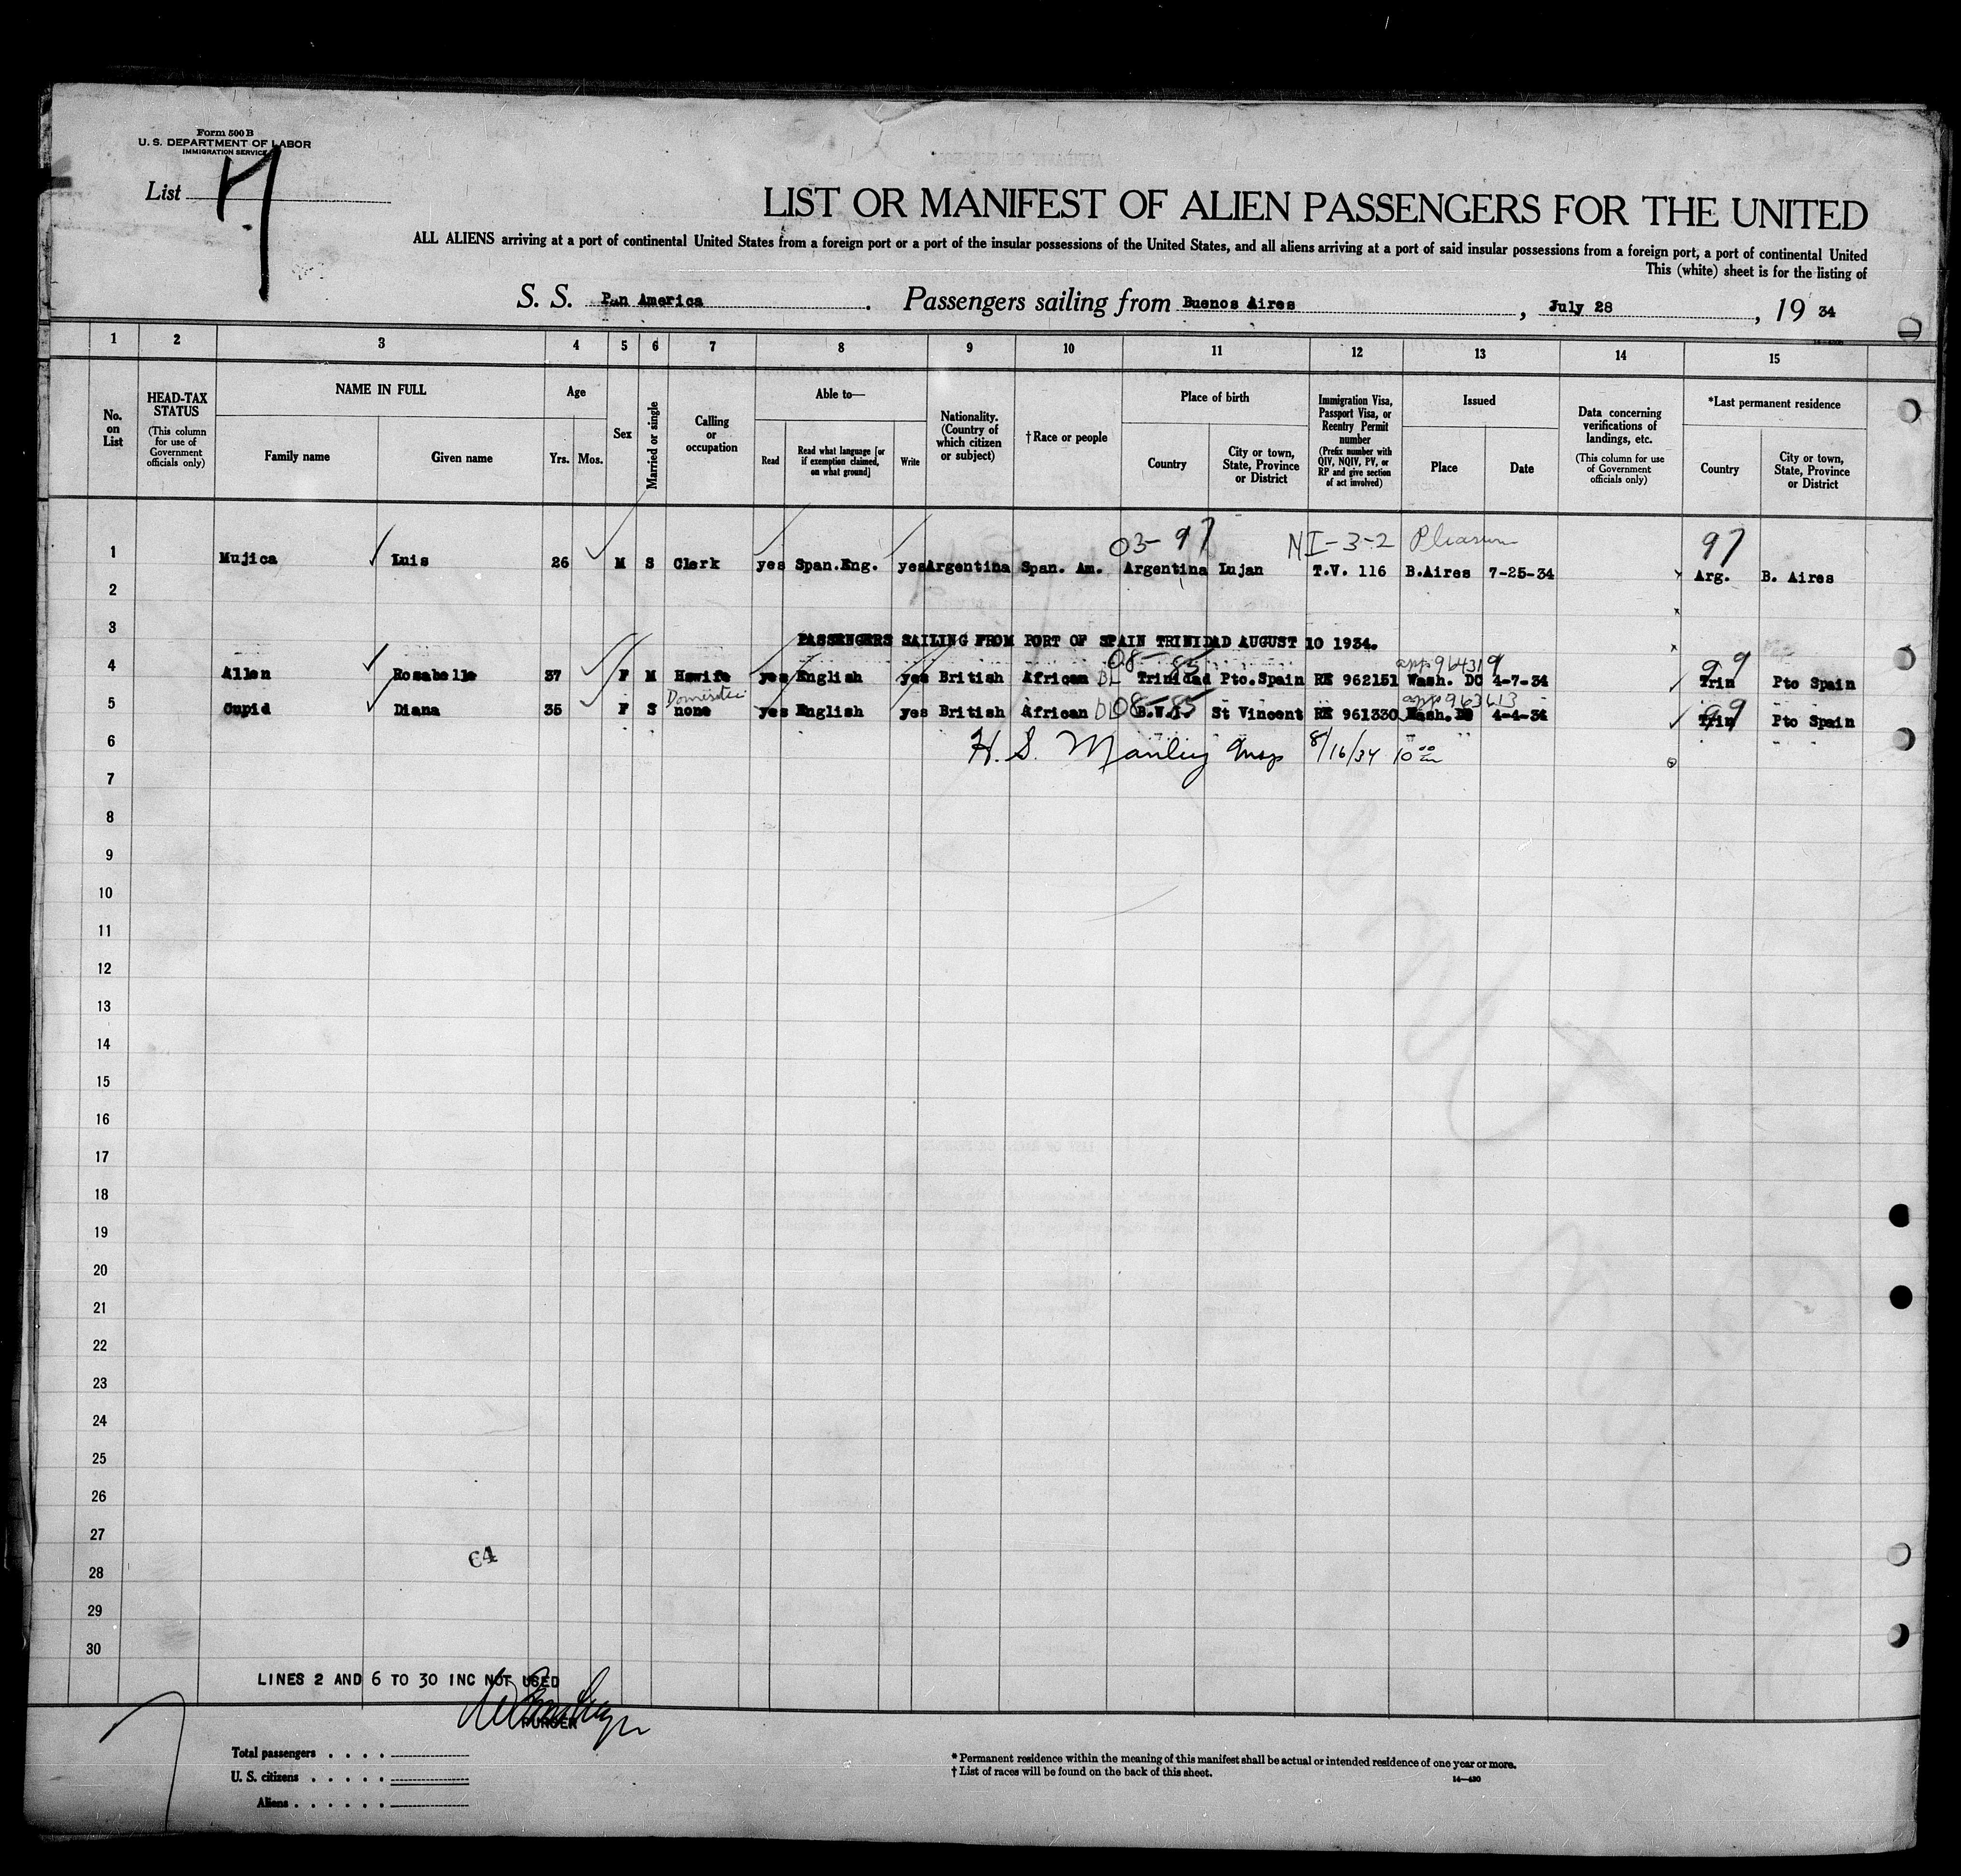 Form 500 B
U. S. DEPARTMENT OF LABOR
IMMIGRATION SERVICE
List
LIST OR MANIFEST OF ALIEN PASSENGERS FOR THE UNITED
ALL ALIENS arriving at a port of continental United States from a foreign port or a port of the insular possessions of the United States, and all aliens arriving at a port of said insular possessions from a foreign port, a port of continental United
This (white) sheet is for the listing of
S. S. Pan America. Passengers sailing from Buenos Aires, July 28, 19 34
1 2 3 4 5 6 7 8 9 10 11 12 13 14 15
No. on List
HEAD-TAX STATUS (This column for use of Government officials only)
NAME IN FULL Family name Given name
Age Yrs. Mos.
Sex
Married or single
Calling or occupation
Able to— Read Read what language [or if exemption claimed, on what ground] Write
Nationality. (Country of which citizen or subject)
†Race or people
Place of birth Country City or town, State, Province or District
Immigration Visa, Passport Visa, or Reentry Permit number (Prefix number with QIV, NQIV, PV, or RP and give section of act involved)
Issued Place Date
Data concerning verifications of landings, etc. (This column for use of Government officials only)
*Last permanent residence Country City or town, State, Province or District
03-97 NI-3-2 Pleasure 97
1 Mujica Luis 26 M S Clerk yes Span.Eng. yes Argentina Span. Am. Argentina Lujan T.V. 116 B.Aires 7-25-34 Arg. B. Aires
2
3 PASSENGERS SAILING FROM PORT OF SPAIN TRINIDAD AUGUST 10 1934.
08-85 99
4 Allen Rosabelle 37 F M Hswife yes English yes British African BL Trinidad Pto.Spain RE 962151 Wash. DC 4-7-34 Trin Pto Spain
Domestic 08-85 app 963613 99
5 Cupid Diana 35 F S none yes English yes British African BL B.W.I. St Vincent RE 961330 Wash.DC 4-4-34 Trin Pto Spain
6 H. S. Manley Insp 8/16/34 10 00
7
8
9
10
11
12
13
14
15
16
17
18
19
20
21
22
23
24
25
26
27
64
28
29
30
LINES 2 AND 6 TO 30 INC NOT USED
PURSER
Total passengers . . . .
U. S. citizens . . . . .
Aliens . . . . . .
* Permanent residence within the meaning of this manifest shall be actual or intended residence of one year or more.
† List of races will be found on the back of this sheet.
14—430